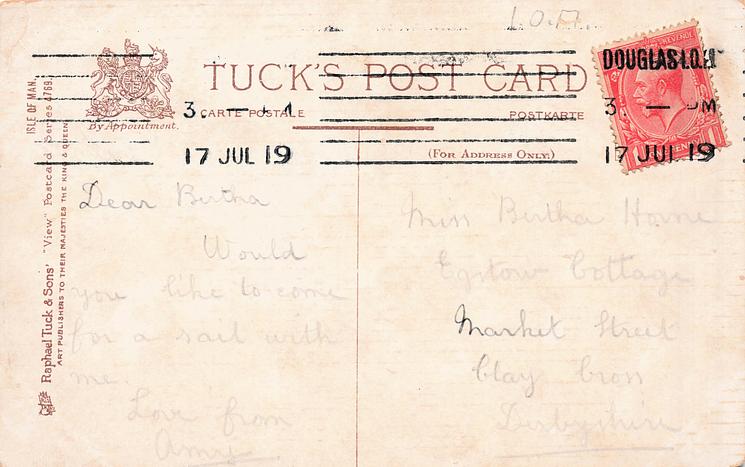 I.O.M.
TUCK'S POST CARD
CARTE POSTALE
POSTKARTE
(FOR ADDRESS ONLY.)
By Appointment.
ISLE OF MAN.
Raphael Tuck & Sons' "View" Postcard Series 4769.
ART PUBLISHERS TO THEIR MAJESTIES THE KING & QUEEN
17 JUL 19
DOUGLAS I.O.M
17 JUL 19
Dear Bertha
Would
you like to come
for a sail with
me.
Love from
Amy
Miss Bertha Horne
Cottage
Market Street
Clay Cross
Derbyshire